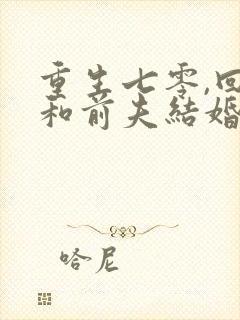 重生七零,回
和前夫結婚
哈尼